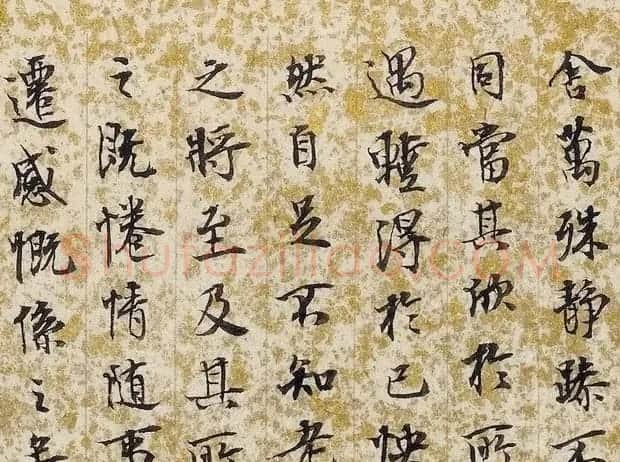 舍萬殊静躁不
同當其欣於所
遇暫得於己快
然自足不知老
之將至及其所
之既惓情随事
遷感慨係之矣